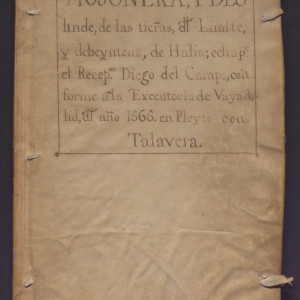 MOJONERA, Y DES
linde, de las tierras, del Limite,
y debeyntena, de Halia; echa pr.
el Recepr. Diego del Campo, con
forme a la Executoria de Vayado
lid, del año 1568. en Pleyto con
Talavera.